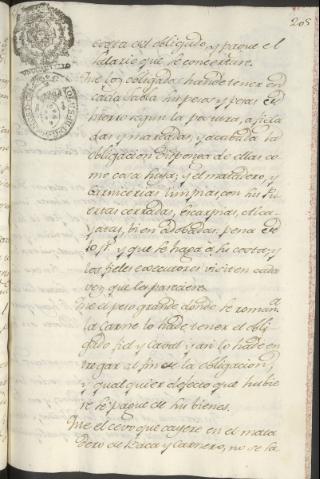 205
costa del obligado, y pague el
salario que se concertare.
Que los obligados han de tener en
cada tabla sus pesos y pesas
segun la postura, afiela
das y marcadas, y acabada la
obligacion disponga de ellas co
mo cosa suya; y el matadero, y
carnicerias limpias, con sus pu
ertas cerradas, escarpias,
bien adobadas, pena
y que se haga a su costa; y
los fieles executores visiten cada
vez que les pareciere.
Que el peso grande donde se roman a
la carne lo ha de tener el obli
gado fiel y cabal y an lo ha de en
tregar al fin de la obligacion,
y qualquier defecto que hubie
re se pague de sus bienes.
Que el cevo que cayere en el mata
dero de Baca y Carnero, no se sa